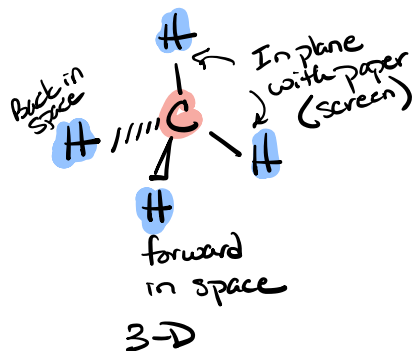 H
In plane
with paper
(screen)
Back in
space
H
C
H
H
forward
in space
3-D